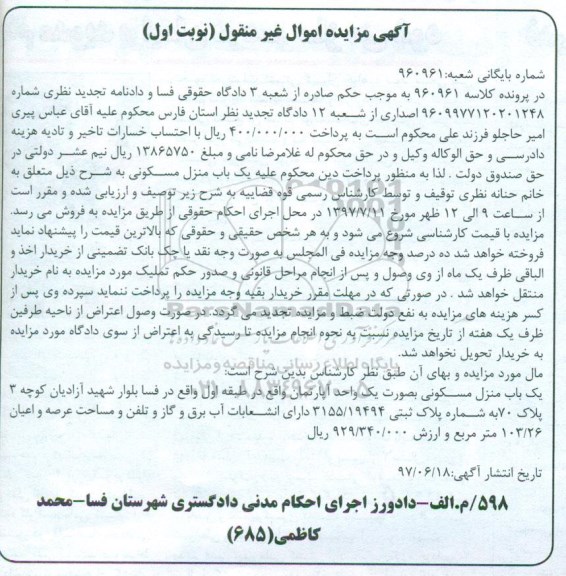 آگهی مزایده اموال غیر منقول (نوبت اول)
شماره بایگانی شعبه:۹۶۰۹۶۱
در پرونده کلاسه ۹۶۰۹۶۱ به موجب حکم صادره از شعبه ۳ دادگاه حقوقی فسا و دادنامه تجدید نظری شماره
۹۶۰۹۹۷۷۱۲۰۲۰۱۲۴۸ اصداری از شعبه ۱۲ دادگاه تجدید نظر استان فارس محکوم علیه آقای عباس پیری
امیر حاجلو فرزند علی محکوم است به پرداخت ۴۰۰/۰۰۰/۰۰۰ ریال با احتساب خسارات تاخیر و تادیه هزینه
دادرسی و حق الوکاله وکیل و در حق محکوم له غلامرضا نامی و مبلغ ۱۳۸۶۵۷۵۰ ریال نیم عشر دولتی در
حق صندوق دولت . لذا به منظور پرداخت دین محکوم علیه یک باب منزل مسکونی به شرح ذیل متعلق به
خانم حنانه نظری توقیف و توسط کارشناس رسمی قوه قضاییه به شرح زیر توصیف و ارزیابی شده و مقرر است
از ساعت ۹ الی ۱۲ ظهر مورخ ۱۳۹۷/۷/۱۱ در محل اجرای احکام حقوقی از طریق مزایده به فروش می رسد.
مزایده با قیمت کارشناسی شروع می شود و به هر شخص حقیقی و حقوقی که بالاترین قیمت را پیشنهاد نماید
فروخته خواهد شد ده درصد وجه مزایده فی المجلس به صورت وجه نقد یا چک بانک تضمینی از خریدار اخذ و
الباقی ظرف یک ماه از وی وصول و پس از انجام مراحل قانونی و صدور حکم تملیک مورد مزایده به نام خریدار
منتقل خواهد شد . در صورتی که در مهلت مقرر خریدار بقیه وجه مزایده را پرداخت ننماید سپرده وی پس از
کسر هزینه های مزایده به نفع دولت ضبط و مزایده تجدید می گردد. در صورت وصول اعتراض از ناحیه طرفین
ظرف یک هفته از تاریخ مزایده نسبت به نحوه انجام مزایده تا رسیدگی به اعتراض از سوی دادگاه مورد مزایده
به خریدار تحویل نخواهد شد.
مال مورد مزایده و بهای آن طبق نظر کارشناس بدین شرح است:
یک باب منزل مسکونی بصورت یک واحد آپارتمان واقع در طبقه اول واقع در فسا بلوار شهید آزادیان کوچه ۳
پلاک ۷۰ به شماره پلاک ثبتی ۳۱۵۵/۱۹۴۹۴ دارای انشعابات آب برق و گاز و تلفن و مساحت عرصه و اعیان
۱۰۳/۲۶ متر مربع و ارزش ۹۲۹/۳۴۰/۰۰۰ ریال
تاریخ انتشار آگهی:۹۷/۰۶/۱۸
۵۹۸/م.الف-دادورز اجرای احکام مدنی دادگستری شهرستان فسا-محمد
کاظمی(۶۸۵)